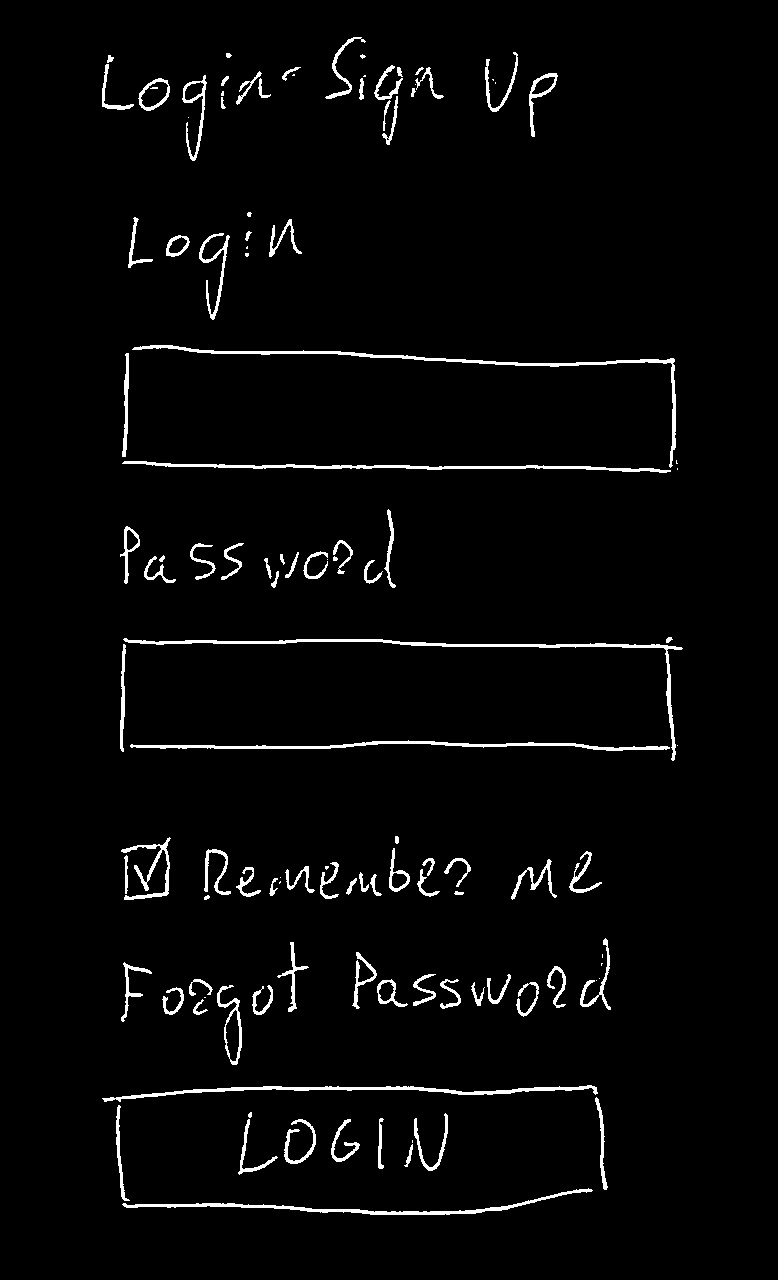 Login - Sign Up
Login
Password
Remember me
Forgot Password
LOGIN